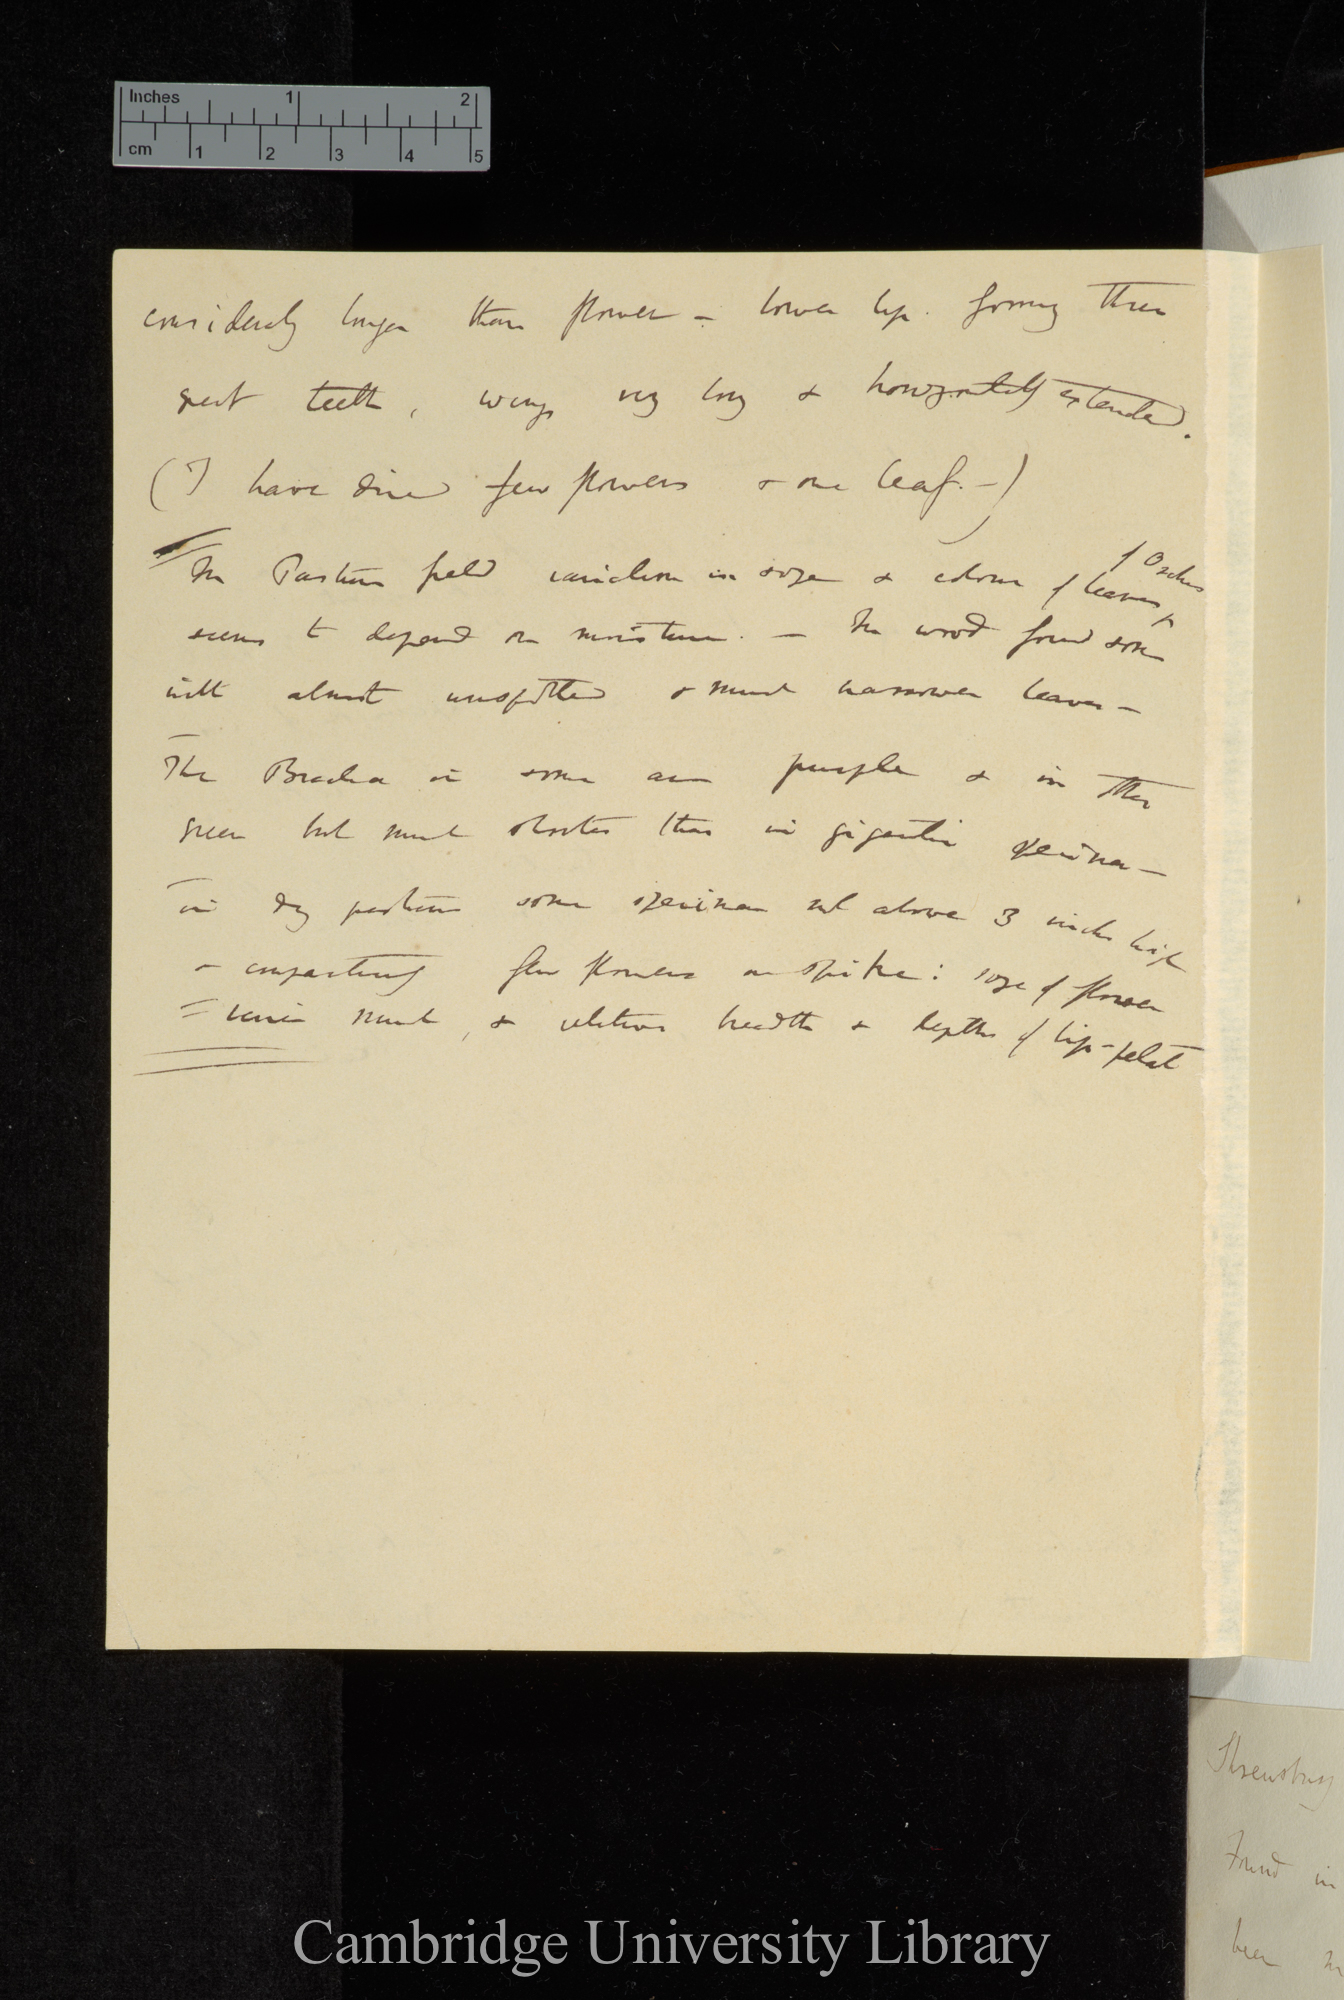 Inches 1 2
cm 1 2 3 4 5
considerably longer than flower — lower lip. forming three
great teeth, wings very long & horizontally extended.
(I have dried few flowers & one leaf. —)
of Orchis
In Pasture field variation in size & colour of leaves
seems to depend on moisture. — In wood found some
with almost unspotted & much narrower leaves —
The Bractea in some are purple & in other
green but much shorter than in gigantic specimen —
in dry pasture some specimen not above 3 inches high
& comparatively few flowers on spike: size of flower
varies much, & relative breadth & depths of lip-petal
Shrewsbury
Found in
been
Cambridge University Library